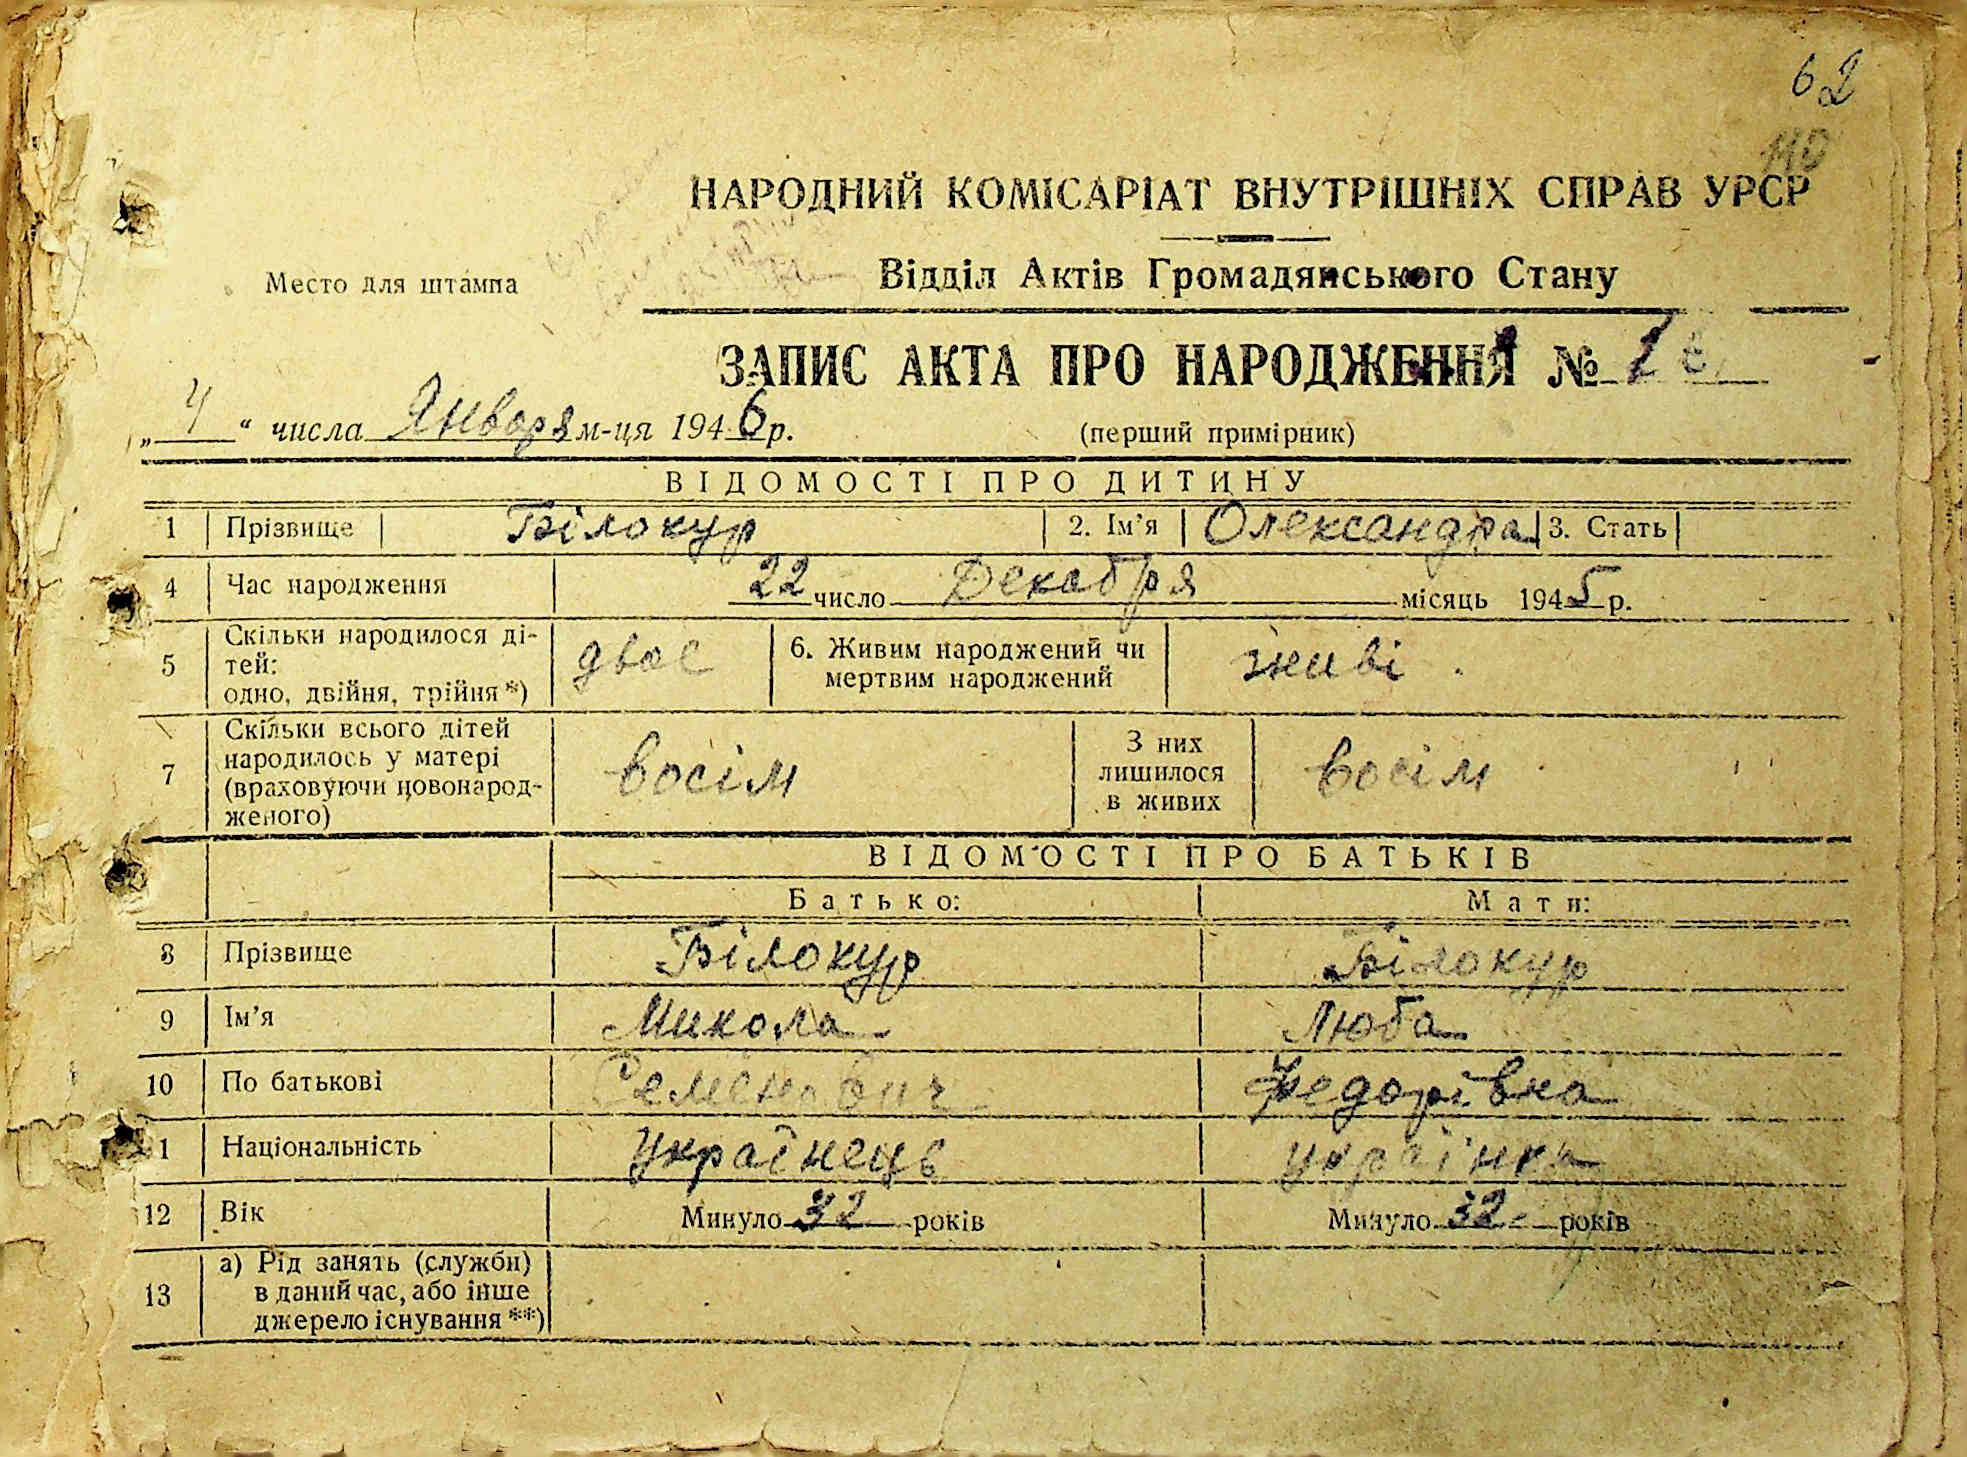 62
110
НАРОДНИЙ КОМІСАРІАТ ВНУТРІШНІХ СПРАВ УРСР
Место для штампа
Відділ Актів Громадянського Стану
ЗАПИС АКТА ПРО НАРОДЖЕННЯ №
„4“ числа Января м-ця 1946 р.
(перший примірник)
ВІДОМОСТІ ПРО ДИТИНУ
1 Прізвище Білокур 2. Ім'я Олександра 3. Стать
4 Час народження 22 число Декабря місяць 1945 р.
5 Скільки народилося ді-
тей:
одно, двійня, трійня*) двоє 6. Живим народжений чи
мертвим народжений живі
7 Скільки всього дітей
народилось у матері
(враховуючи новонарод-
женого) восім З них
лишилося
в живих восім
ВІДОМОСТІ ПРО БАТЬКІВ
Батько: Мати:
8 Прізвище Білокур Білокур
9 Ім'я Микола Люба
10 По батькові Семенович Федорівна
11 Національність Українець українка
12 Вік Минуло 32 років Минуло 32 років
13 а) Рід занять (служби)
в даний час, або інше
джерело існування**)